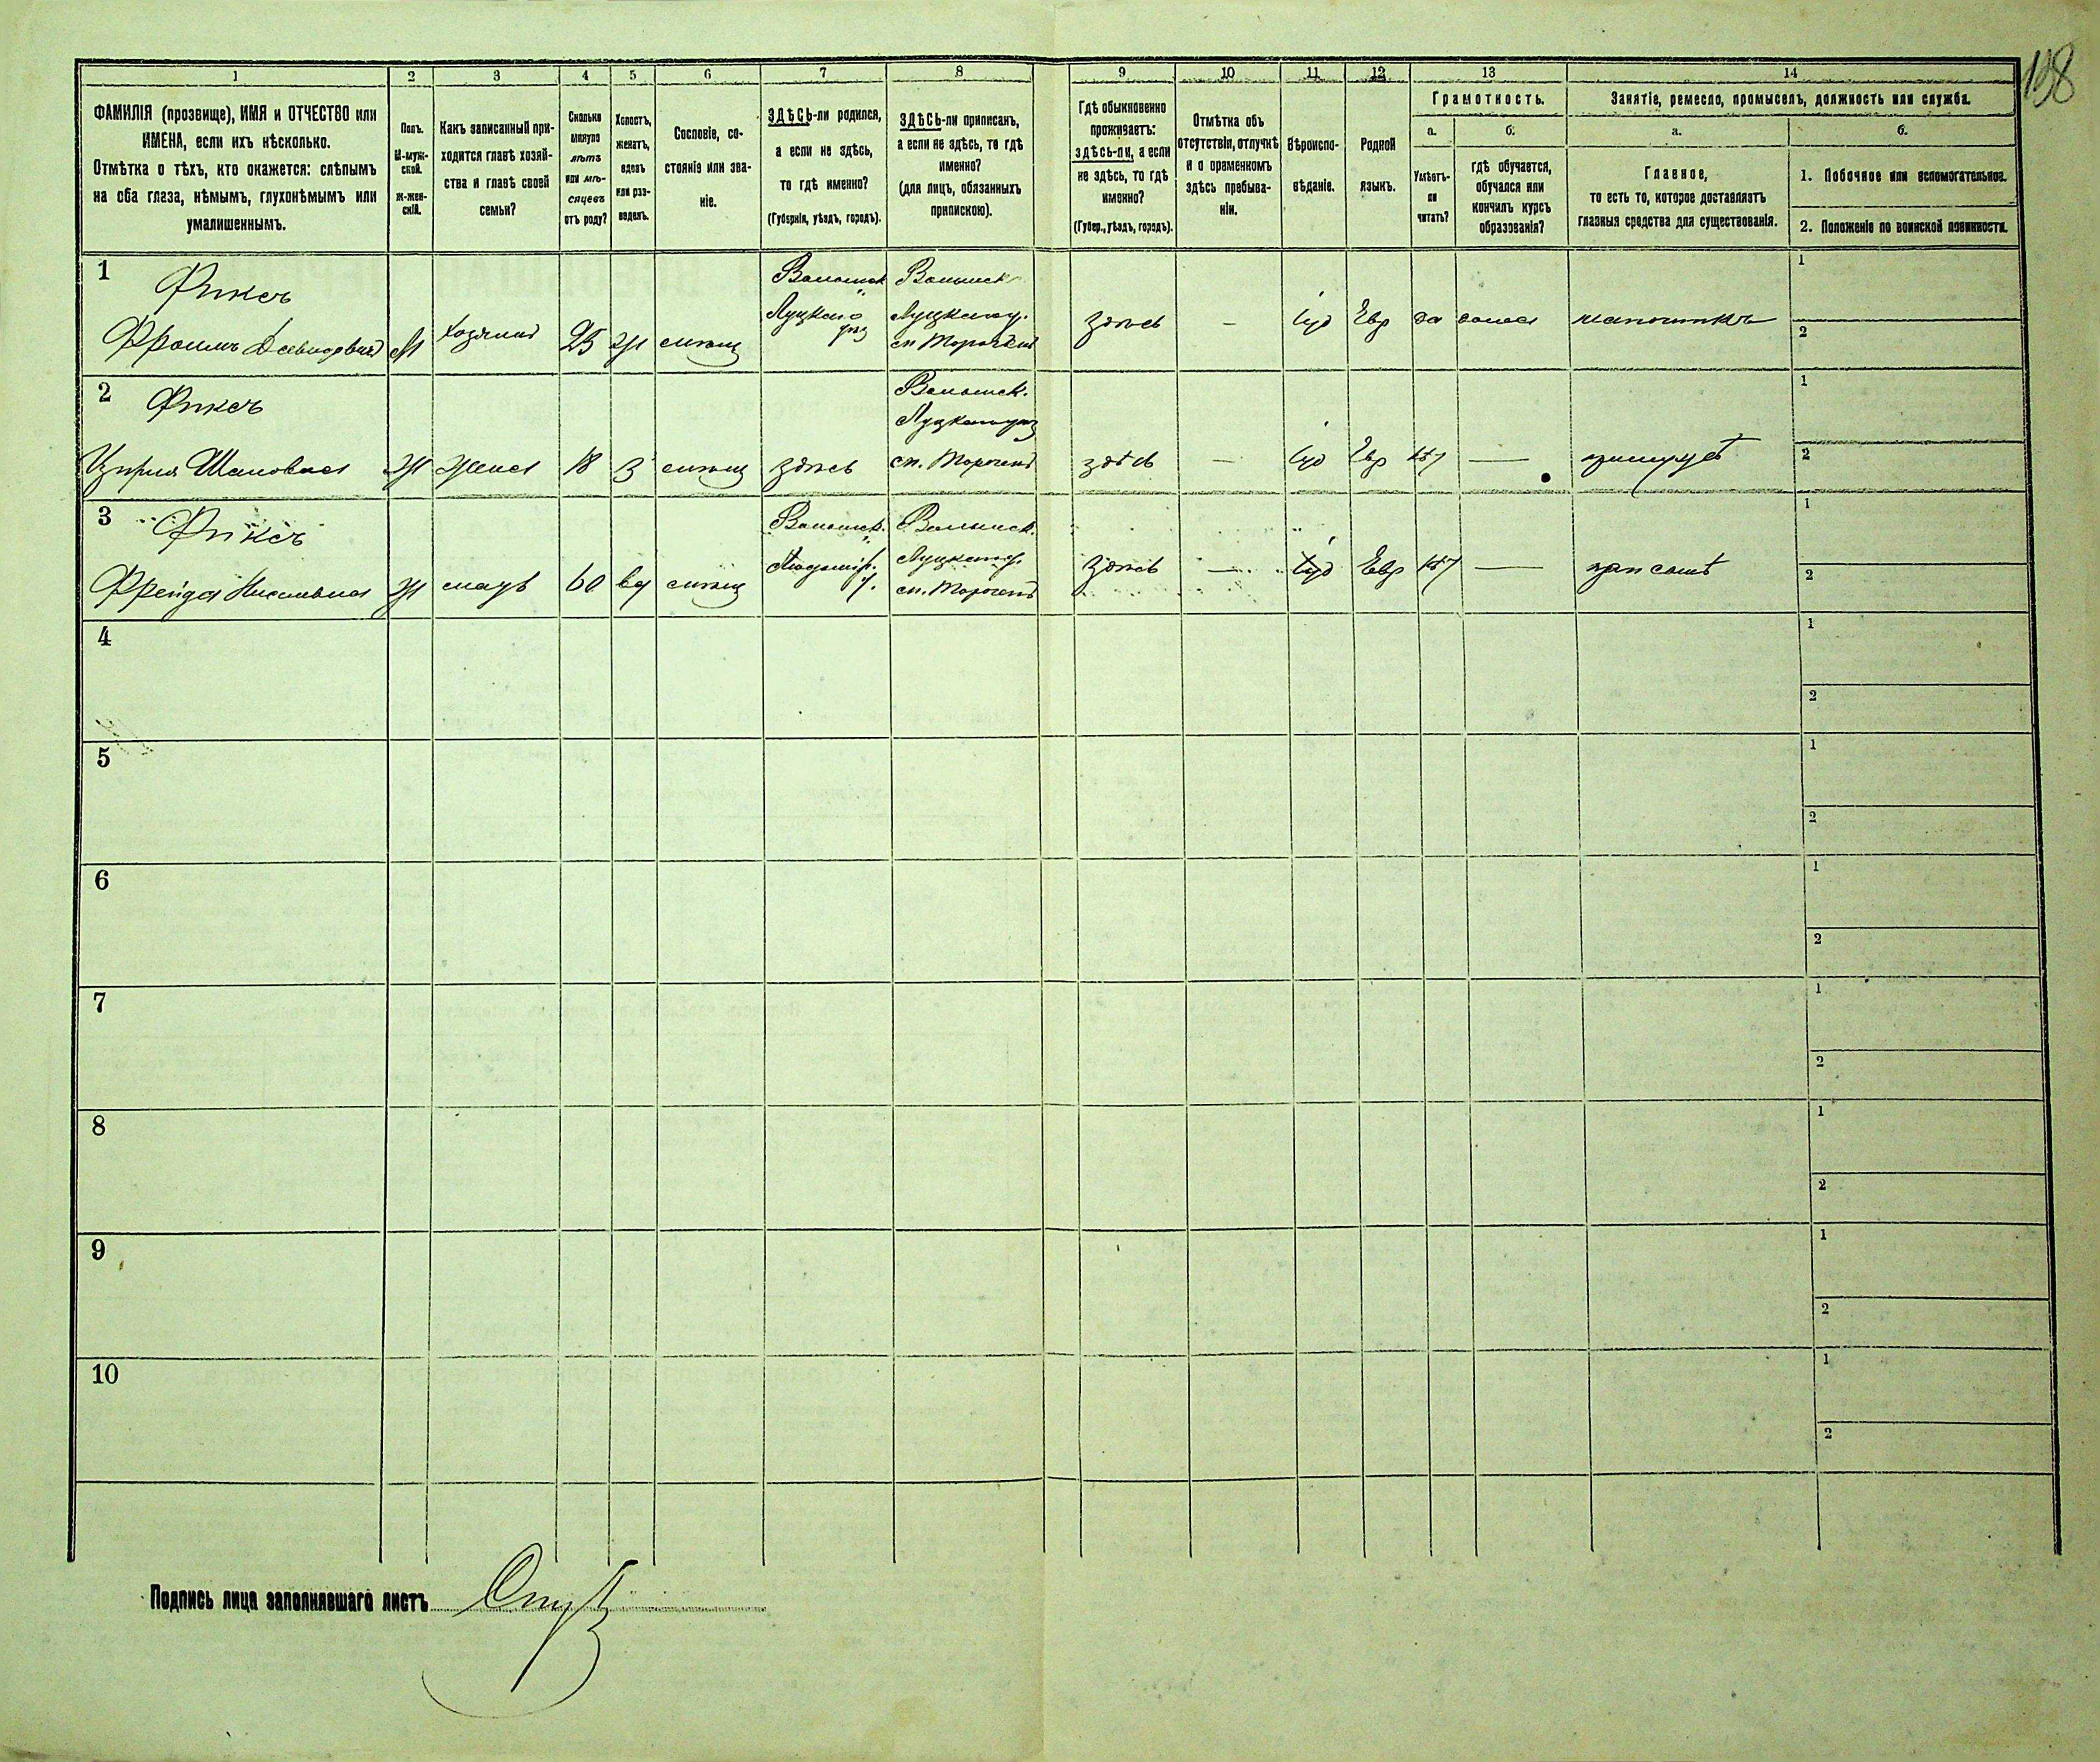 198
1 2 3 4 5 6 7 8 9 10 11 12 13 14
ФАМИЛІЯ (прозвище), ИМЯ и ОТЧЕСТВО или
ИМЕНА, если ихъ нѣсколько.
Отмѣтка о тѣхъ, кто окажется: слѣпымъ
на оба глаза, нѣмымъ, глухонѣмымъ или
умалишеннымъ.
Полъ.
М-муж-
ской.
Ж-жен-
скій.
Какъ записанный при-
ходится главѣ хозяй-
ства и главѣ своей
семьи?
Сколько
минуло
лѣтъ
или мѣ-
сяцевъ
отъ роду?
Холостъ,
женатъ,
вдовъ
или раз-
веденъ.
Сословіе, со-
стояніе или зва-
ніе.
ЗДѢСЬ-ли родился,
а если не здѣсь,
то гдѣ именно?
(Губернія, уѣздъ, городъ).
ЗДѢСЬ-ли приписанъ,
а если не здѣсь, то гдѣ
именно?
(для лицъ, обязанныхъ
припискою).
Гдѣ обыкновенно
проживаетъ:
здѣсь-ли, а если
не здѣсь, то гдѣ
именно?
(Губер., уѣздъ, городъ).
Отмѣтка объ
отсутствіи, отлучкѣ
и о временномъ
здѣсь пребыва-
ніи.
Вѣроиспо-
вѣданіе.
Родной
языкъ.
Грамотность.
а.
Умѣетъ-
ли
читать?
б.
гдѣ обучается,
обучался или
кончилъ курсъ
образованія?
Занятіе, ремесло, промыселъ, должность или служба.
а.
Главное,
то есть то, которое доставляетъ
главныя средства для существованія.
б.
1. Побочное или вспомогательное.
2. Положеніе по воинской повинности.
1 Фиксъ
Фроимъ Давидовичъ М Хозяинъ 25 Ж мѣщ
Волынск
Луцкаго
уѣз
Волынск
Луцкаго у.
м Торчинъ
здѣсь — Іуд Евр да дома шапочникъ
1
2
2 Фиксъ
Ципра Шаповна Ж жена 18 З мѣщ здѣсь
Волынск.
Луцкаго уѣз
м. Торчинъ
здѣсь — Іуд Евр нѣт —
1
2
3 Фиксъ
Фрейда Ж мать 60 вд мѣщ
Волынск.
у.
Волынск.
Луцкаго у.
м. Торчинъ
здѣсь — Іуд Евр нѣт — при сынѣ
1
2
4
1
2
5
1
2
6
1
2
7
1
2
8
1
2
9
1
2
10
1
2
Подпись лица заполнявшаго листъ